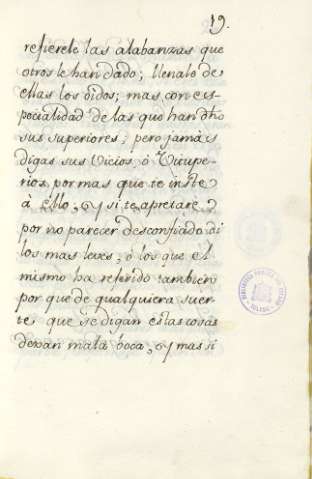 19.
refierele las alabanzas que
otros le han dado; llenalo de
ellas los oidos; mas con es-
pecialidad de las que han dho
sus superiores; pero jamàs
digas sus vicios, ò Vitupe-
rios, por mas que te inste
à ello; y si te apretare
por no parecer desconfiado di
los mas leves, ò los que el
mismo ha referido tambien
por que de qualquiera suer-
te que se digan estas cosas
dexan mala boca; y mas si